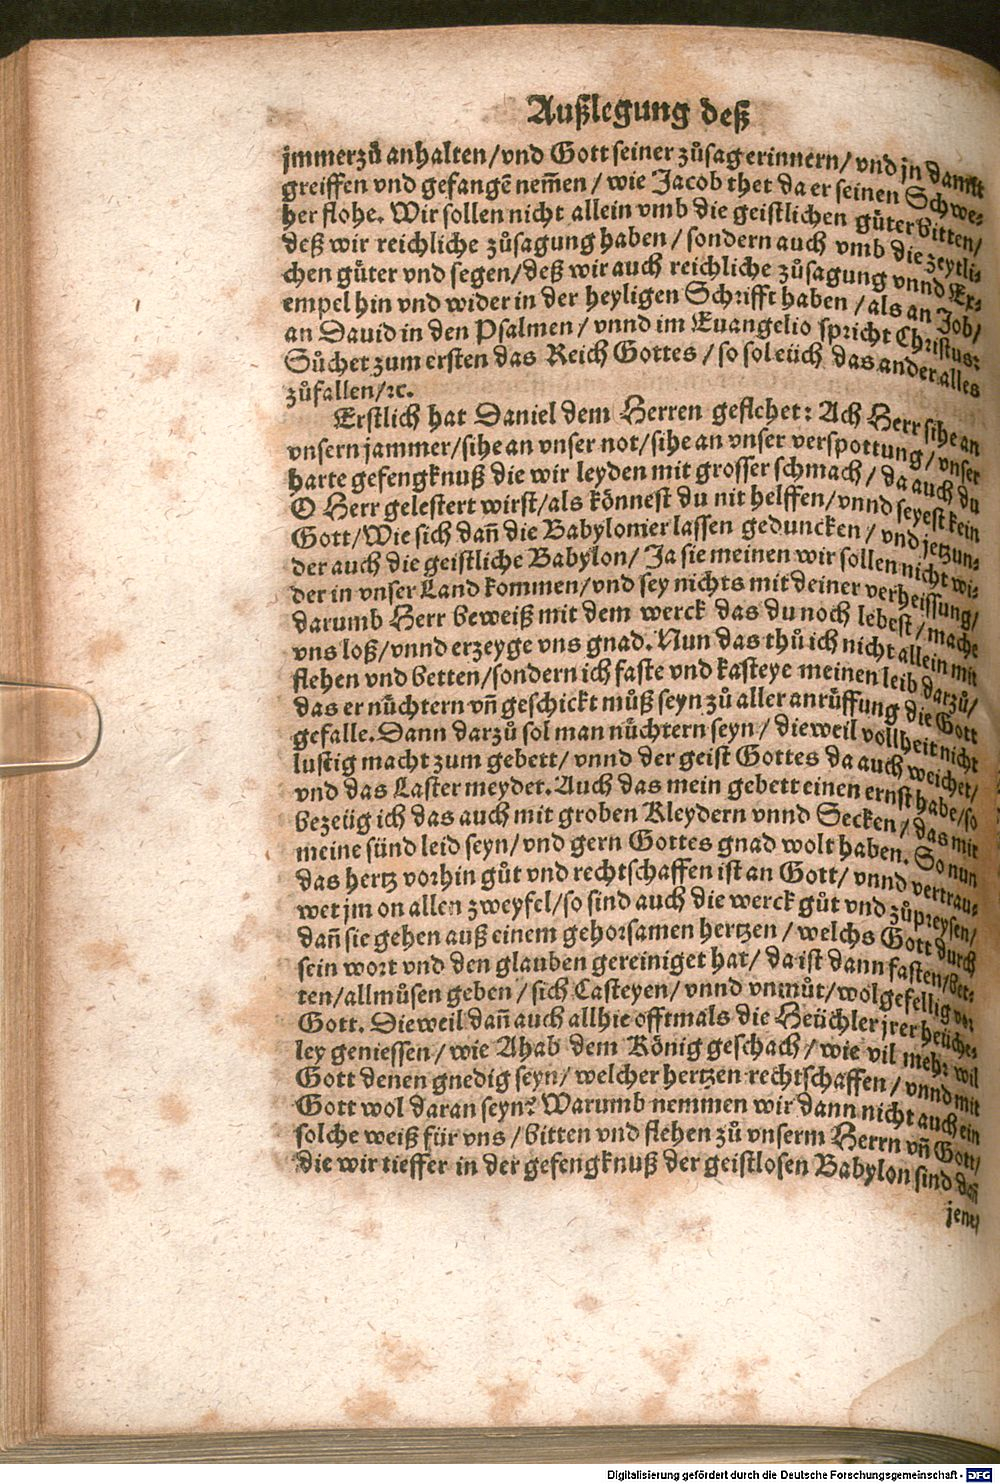 Außlegung deß
jmmerzů anhalten/vnd Gott seiner zůsag erinnern/vnd jn damit
greiffen vnd gefangẽ nem̃en/wie Jacob thet da er seinen Schwe-
her flohe. Wir sollen nicht allein vmb die geistlichen gůter bitten/
deß wir reichliche zůsagung haben/sondern auch vmb die zeytli-
chen gůter vnd segen/deß wir auch reichliche zůsagung vnnd Ex-
empel hin vnd wider in der heyligen Schrifft haben/als an Job/
an Dauid in den Psalmen/vnnd im Euangelio spricht Christus:
Sůchet zum ersten das Reich Gottes/so sol eüch das ander alles
zůfallen/ꝛc.
Erstlich hat Daniel dem Herren geflehet: Ach Herr sihe an
vnsern jammer/sihe an vnser not/sihe an vnser verspottung/vnser
harte gefengknuß die wir leyden mit grosser schmach/da auch du
O Herr gelestert wirst/als könnest du nit helffen/vnnd seyest kein
Gott/Wie sich dañ die Babylonier lassen geduncken/vnd jetzun-
der auch die geistliche Babylon/Ja sie meinen wir sollen nicht wi-
der in vnser Land kommen/vnd sey nichts mit deiner verheissung/
darumb Herr beweiß mit dem werck das du noch lebest/mache
vns loß/vnnd erzeyge vns gnad. Nun das thů ich nicht allein mit
flehen vnd betten/sondern ich faste vnd kasteye meinen leib darzů/
das er nůchtern vñ geschickt můß seyn zů aller anrůffung die Gott
gefalle. Dann darzů sol man nůchtern seyn/dieweil vollheit nicht
lustig macht zum gebett/vnnd der geist Gottes da auch weichet/
vnd das Laster meydet. Auch das mein gebett einen ernst habe/so
bezeüg ich das auch mit groben Kleydern vnnd Secken/das mit
meine sünd leid seyn/vnd gern Gottes gnad wolt haben. So nun
das hertz vorhin gůt vnd rechtschaffen ist an Gott/vnnd vertrau-
wet jm on allen zweyfel/so sind auch die werck gůt vnd zůpreysen/
dañ sie gehen auß einem gehorsamen hertzen/welchs Gott durch
sein wort vnd den glauben gereiniget hat/da ist dann fasten/bet-
ten/allmůsen geben/sich Casteyen/vnnd vnmůt/wolgefellig vor
Gott. Dieweil dañ auch allhie offtmals die Heüchler jrer heüche-
ley geniessen/wie Ahab dem König geschach/wie vil mehr wil
Gott denen gnedig seyn/welcher hertzen rechtschaffen/vnnd mit
Gott wol daran seyn? Warumb nemmen wir dann nicht auch ein
solche weiß für vns/bitten vnd flehen zů vnserm Herrn vñ Gott/
die wir tieffer in der gefengknuß der geistlosen Babylon sind dañ
jene/
Digitalisierung gefördert durch die Deutsche Forschungsgemeinschaft - DFG